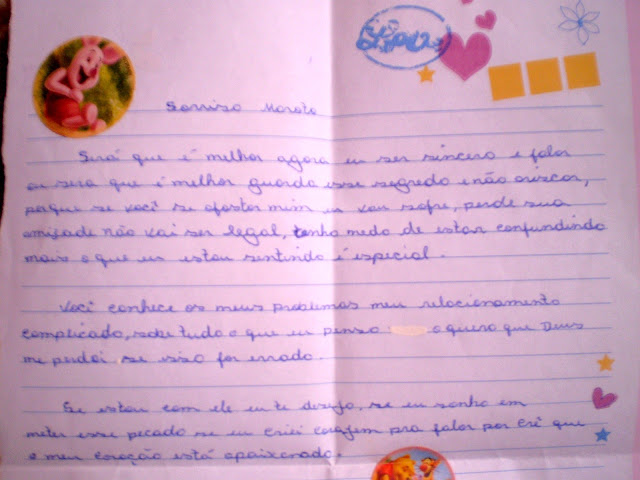 Sorriso Maroto
Será que é melhor agora eu ser sincero e falar
ou sera que é melhor guarda esse segredo e não ariscar,
porque se você se afastar mim eu vou sofre, perde sua
amizade não vai ser legal, tenho medo de estar confundindo
mais o que eu estou sentindo é especial.
Você conhece os meus problemas meu relacionamento
complicado, sabe tudo o que eu penso o quero que Deus
me perdoi se isso for errado.
Se estou com ele eu te desejo, se eu sonho em
meter esse pecado se eu criei coragem pra falar por crê que
o meu coração está apaixonado.